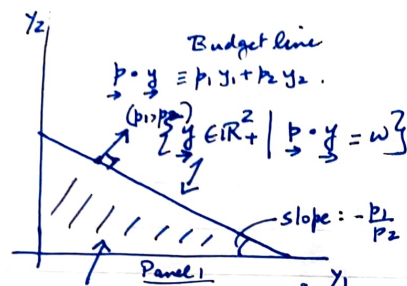 y₂
Budget line
p⃗ · y⃗ ≡ p₁ y₁ + p₂ y₂ .
(p₁, p₂)
{ y⃗ ∈ ℝ²₊ | p⃗ · y⃗ = w }
slope : - p₁/p₂
Panel 1
y₁